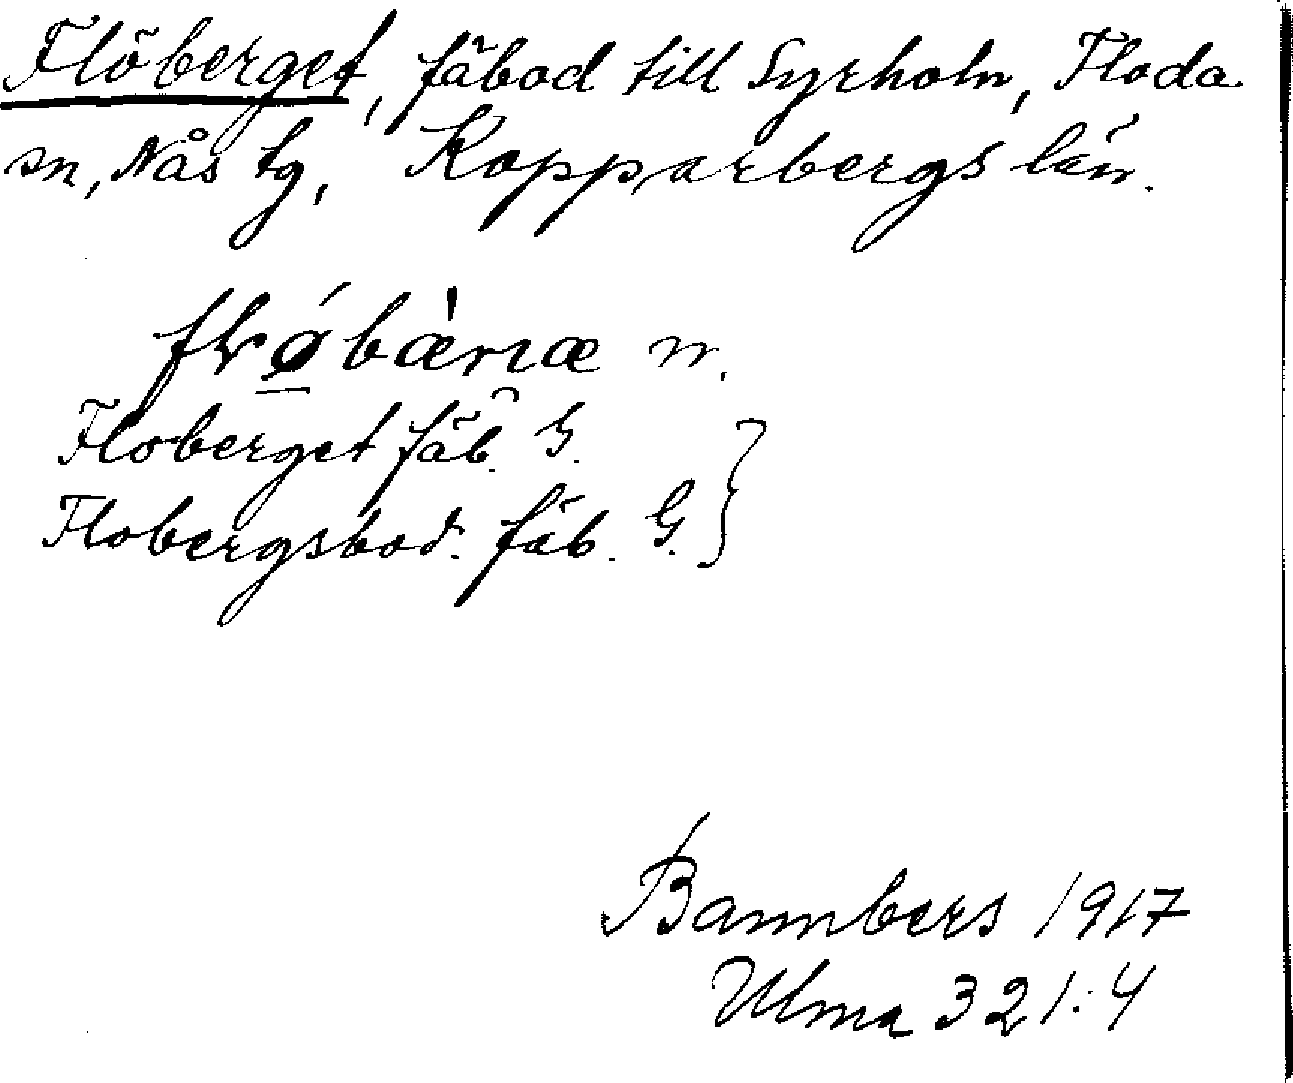 Flöberget, fäbod till Syrholn, Floda
sn, Nås tg, Kopparbergs län.
n.
Floberget fäb. G.
Flobergsbod. fäb. G.
Bannbers 1917
Ulma 321:4